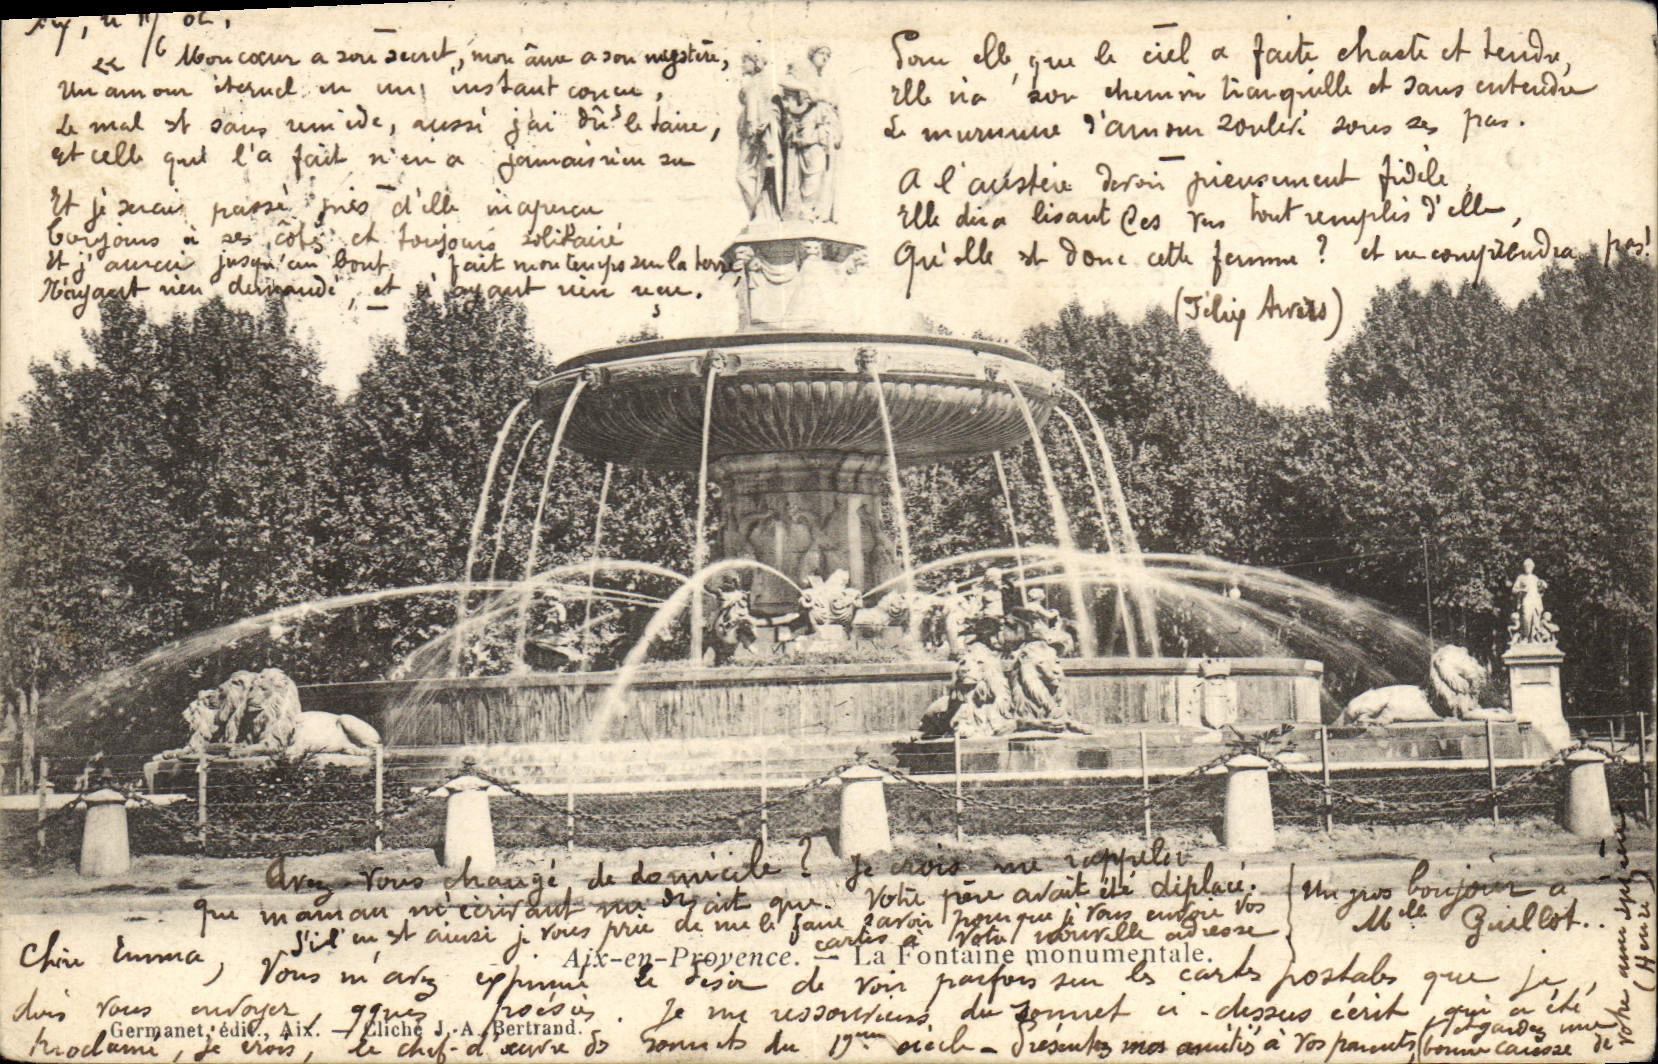 Aix, le 11/6 02,
« Mon cœur a son secret, mon âme a son mystère,
Un amour éternel en un instant conçu,
Le mal est sans remède, aussi j'ai dû le taire,
Et celle qui l'a fait n'en a jamais rien su
Et je serais passé près d'elle inaperçu
Toujours à ses côtés et toujours solitaire
Et j'aurai jusqu'au bout fait mon temps sur la terre,
N'ayant rien demandé, et n'ayant rien reçu.
Pour elle, que le ciel a faite chaste et tendre,
Elle ira son chemin tranquille et sans entendre
Le murmure d'amour soulevé sous ses pas.
A l'austère devoir pieusement fidèle,
Elle dira lisant ces vers tout remplis d'elle,
Qu'elle est donc cette femme ? et ne comprendra pas!
(Félix Arvers)
Avez-vous changé de domicile ? Je crois me rappeler
que maman m'écrivant me disait que votre père avait été déplacé.
S'il en est ainsi je vous prie de me le faire savoir pour que je vous envoie vos
cartes à votre nouvelle adresse
Un gros bonjour a
Mlle Guillot..
Aix-en-Provence. — La Fontaine monumentale.
Chère Emma, Vous m'avez exprimé le désir de voir parfois sur les cartes postales que je
dois vous envoyer, qques poésies. Je me ressouviens du sonnet ci-dessus écrit, qui a été
Germanet, édit., Aix. — Cliché J.-A. Bertrand.
proclamé, je crois, le chef-d'œuvre des sonnets du 19ème siècle - Présentez mes amitiés à vos parents,
et gardez une
bonne caisse de
votre ami
(Henri)